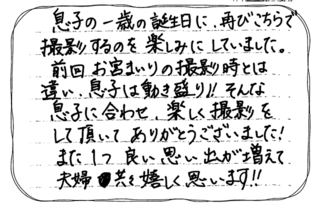 息子の一歳の誕生日に、再びこちらで
撮影するのを楽しみにしていました。
前回お宮まいりの撮影時とは
違い、息子は動き盛り!! そんな
息子に合わせ、楽しく撮影を
して頂いてありがとうございました!
また1つ良い思い出が増えて
夫婦共々嬉しく思います!!